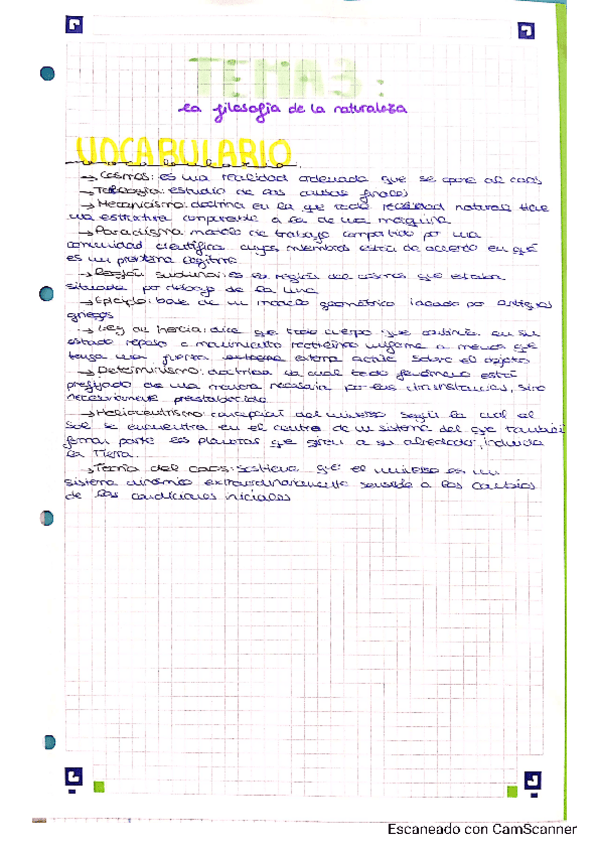 TEMA 3:
la filosofía de la naturaleza
VOCABULARIO
→ Cosmos: es una realidad ordenada que se opone al caos
→ Teleología: estudio de las causas finales
→ Mecanicismo: doctrina en la que toda realidad natural tiene
una estructura comparable a la de una máquina
→ Paradigma: modelo de trabajo compartido por una
comunidad científica cuyos miembros están de acuerdo en qué
es un problema legítimo
→ Región sublunar: es la región del cosmos que estaba
situada por debajo de la luna
→ Epiciclo: base de un modelo geométrico ideado por antiguos
griegos
Ley de inercia: dice que todo cuerpo que continúa en su
estado reposo o movimiento rectilíneo uniforme a menos que
tenga una fuerza externa actúe sobre el objeto
→ Determinismo: doctrina la cual todo fenómeno está
prefijado de una manera necesaria por las circunstancias, sino
necesariamente preestablecido
→ Heliocentrismo: concepción del universo según la cual el
Sol se encuentra en el centro de un sistema del que también
forman parte los planetas que giran a su alrededor, incluida
la Tierra.
→ Teoría del caos: sostiene que el universo es un
sistema dinámico extraordinariamente sensible a los cambios
de las condiciones iniciales
Escaneado con CamScanner